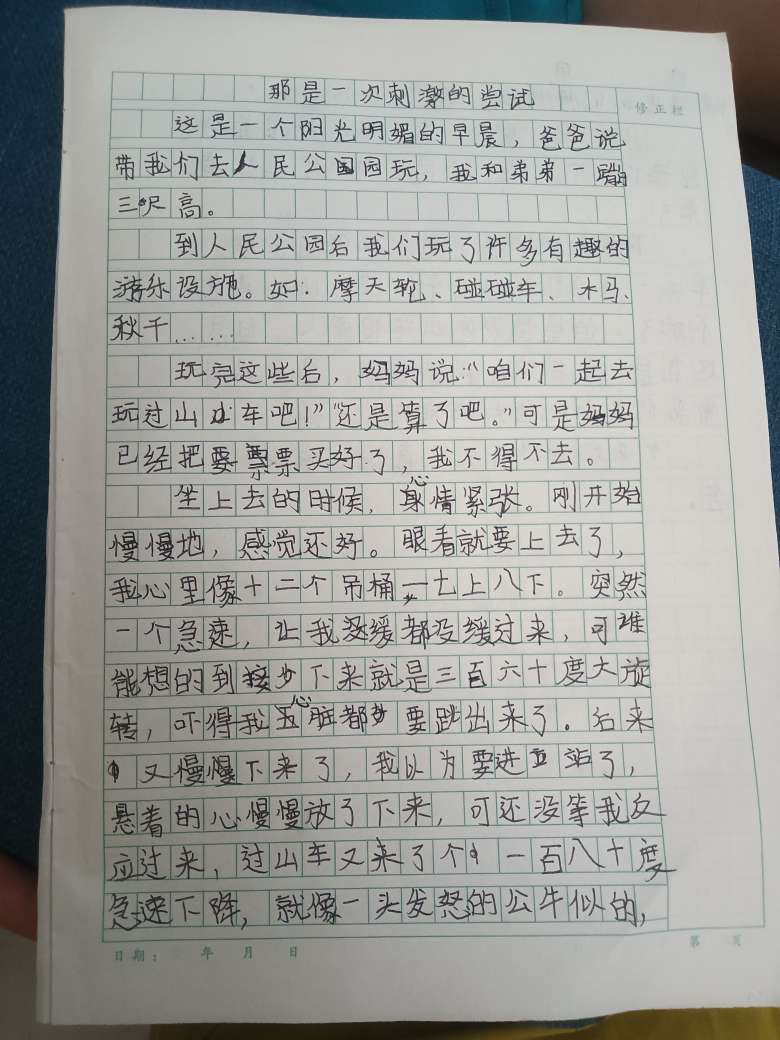 那是一次刺激的尝试
修正栏
这是一个阳光明媚的早晨，爸爸说
带我们去人民公园玩，我和弟弟一蹦
三尺高。
到人民公园后我们玩了许多有趣的
游乐设施。如：摩天轮、碰碰车、木马、
秋千……
玩完这些后，妈妈说：“咱们一起去
玩过山车吧！”“还是算了吧。”可是妈妈
已经把要票买好了，我不得不去。
坐上去的时候，心情紧张。刚开始
慢慢地，感觉还好。眼看就要上去了，
我心里像十二个吊桶一七上八下。突然
一个急速，让我缓都没缓过来，可谁
能想的到接下来就是三百六十度大旋
转，吓得我心脏都要跳出来了。后来
又慢慢下来了，我以为要进站了，
悬着的心慢慢放了下来，可还没等我反
应过来，过山车又来了个一百八十度
急速下降，就像一头发怒的公牛似的，
日期： 年 月 日
第 页